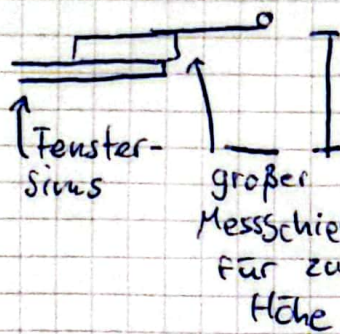 Fenster-
Sims
großer
Messschie
für zu
Höhe